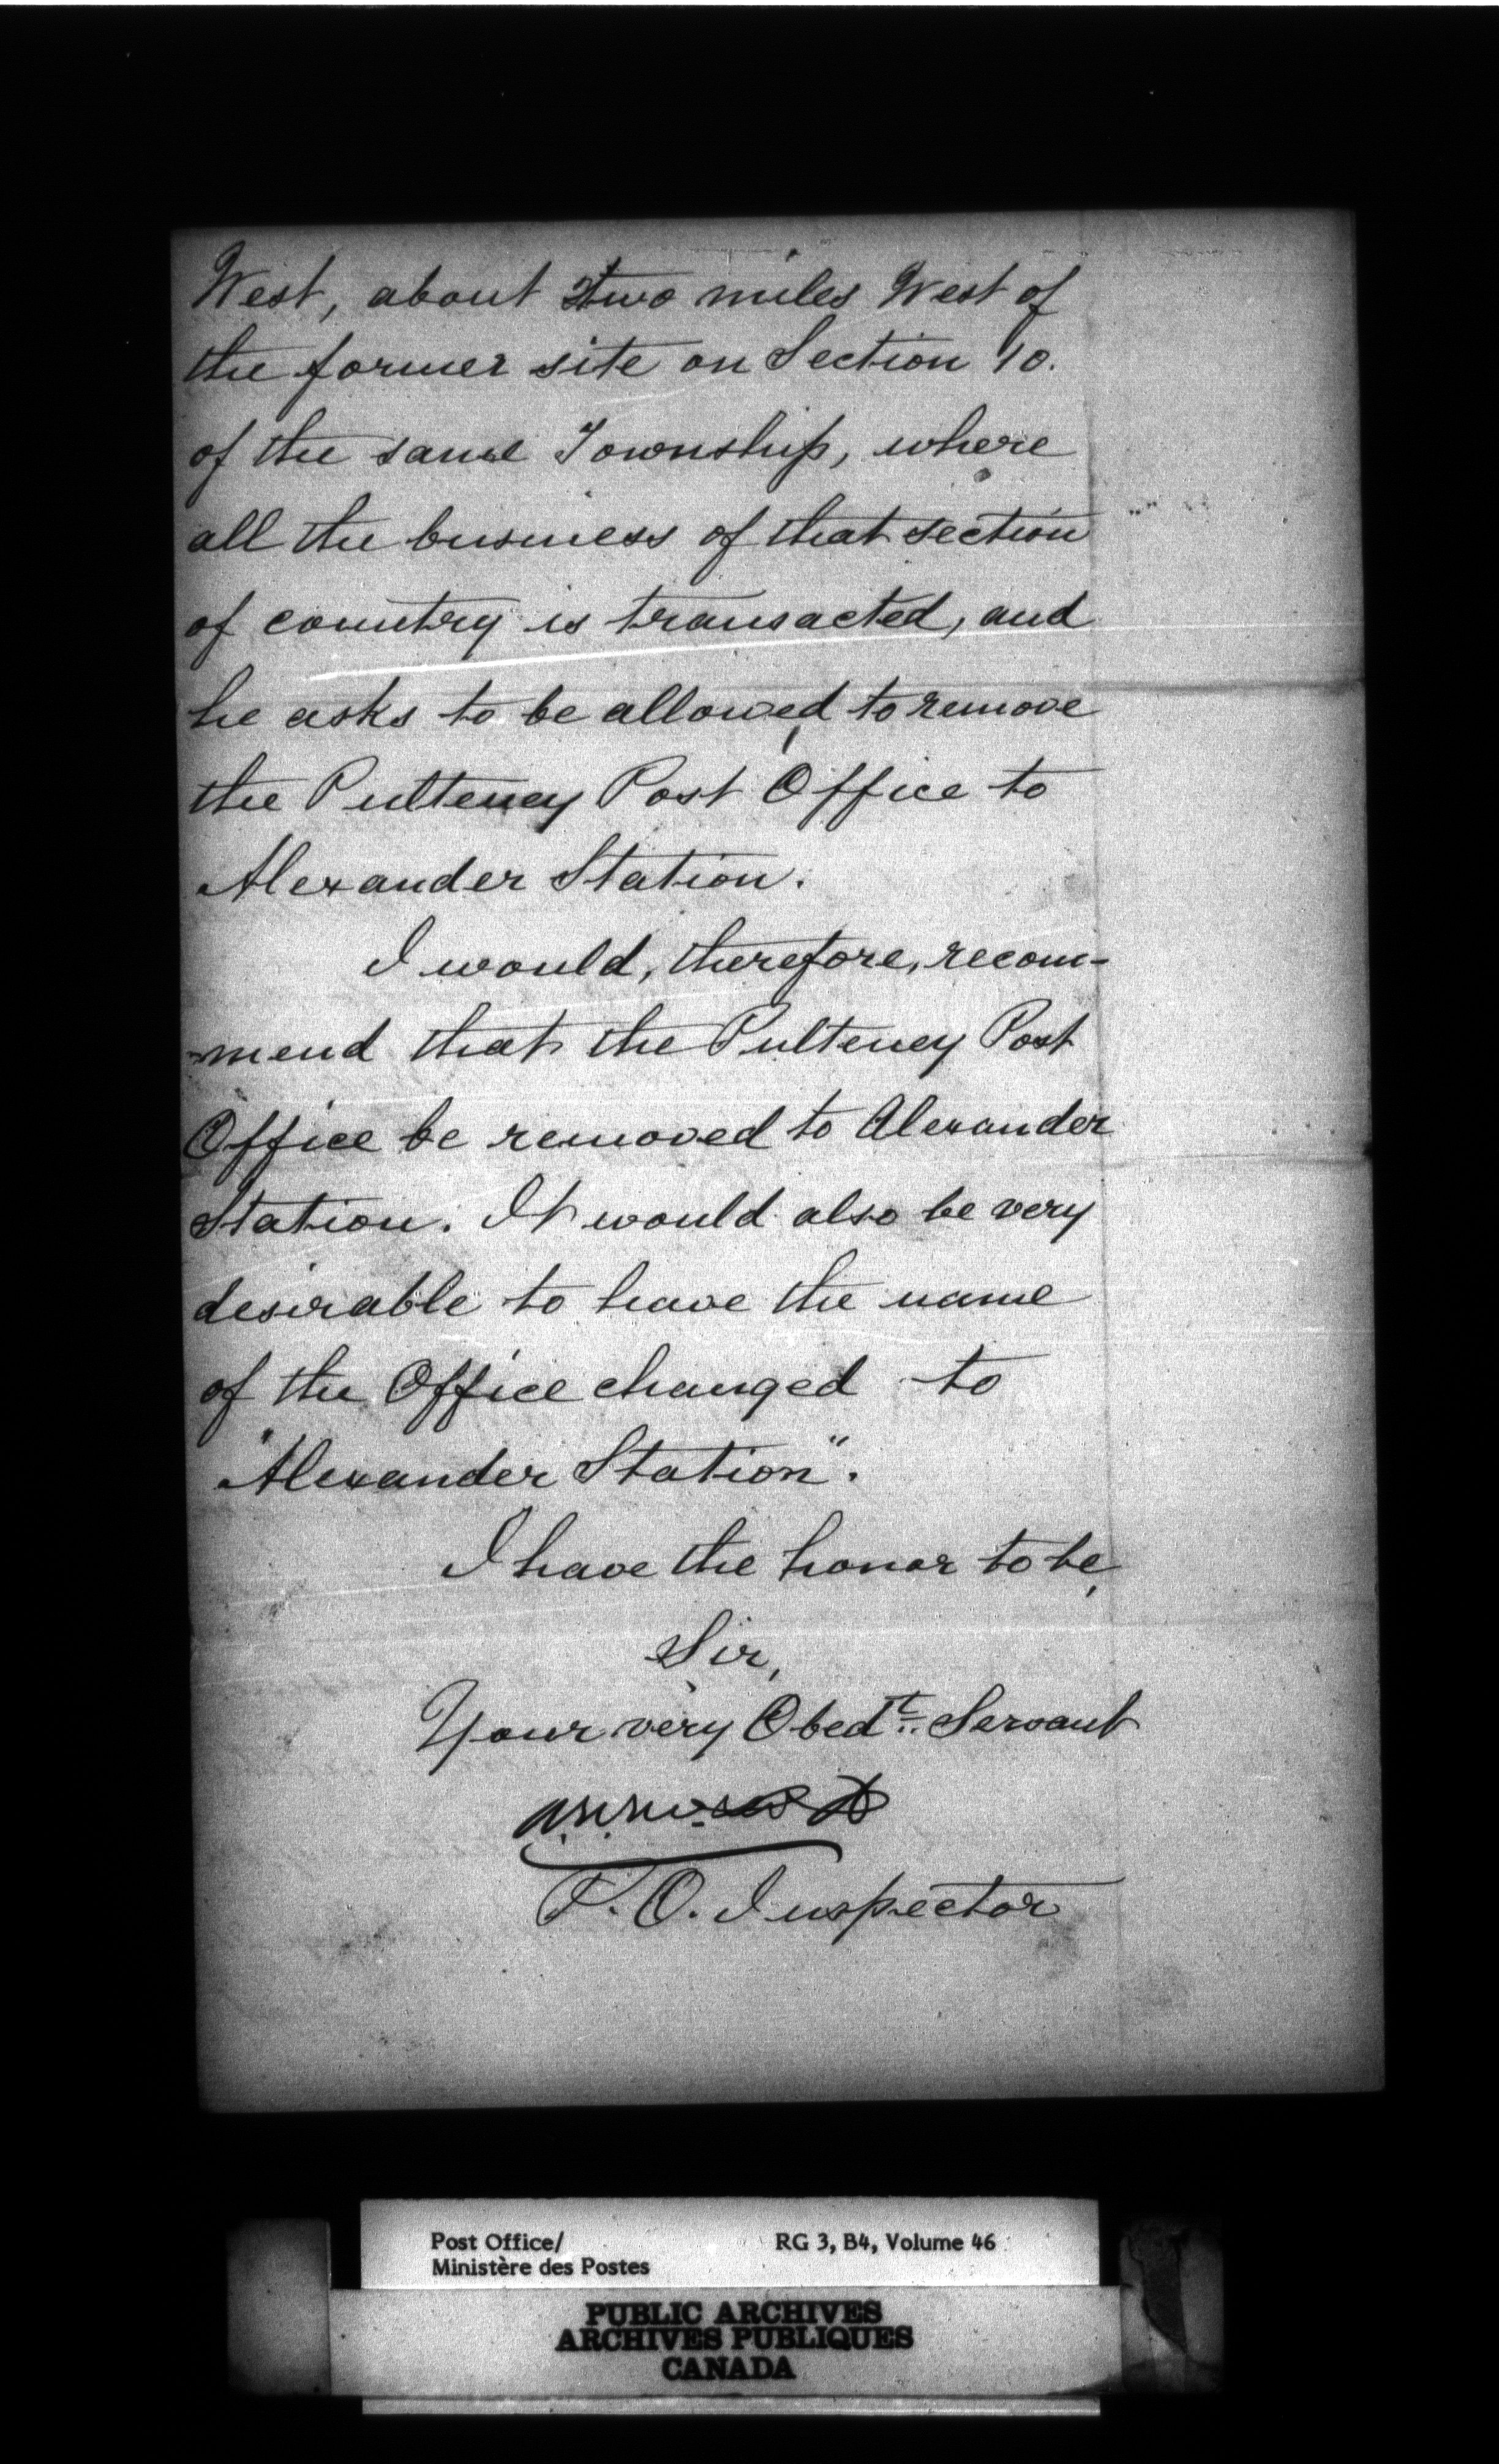 West, about two miles West of
the former site on Section 10.
of the same Township, where
all the business of that section
of country is transacted, and
he asks to be allowed to remove
the Pulteney Post Office to
Alexander Station.
I would, therefore, recom-
mend that the Pulteney Post
Office be removed to Alexander
Station. It would also be very
desirable to have the name
of the Office changed to
"Alexander Station".
I have the honor to be,
Sir,
Your very Obedt. Servant
P. O. Inspector
Post Office/ RG 3, B4, Volume 46
Ministère des Postes
PUBLIC ARCHIVES
ARCHIVES PUBLIQUES
CANADA